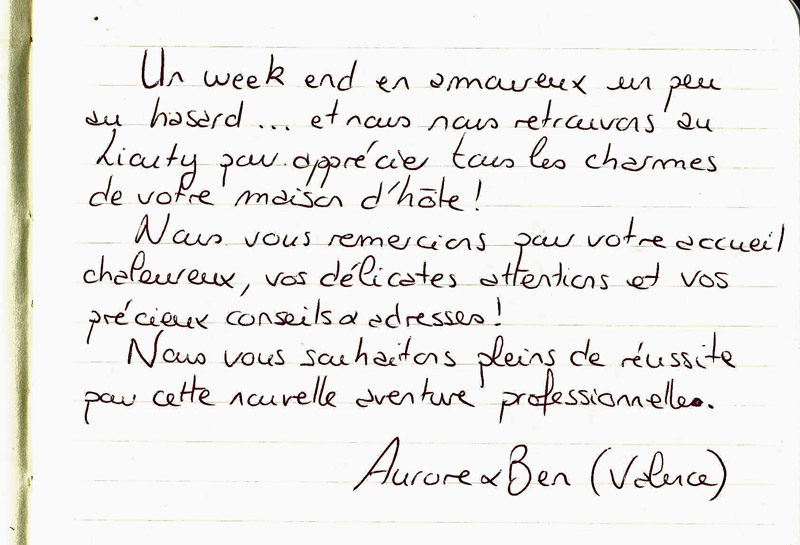 Un week end en amoureux un peu
au hasard ... et nous nous retrouvons au
Liauty pour apprécier tous les charmes
de votre maison d'hôte !
Nous vous remercions pour votre accueil
chaleureux, vos délicates attentions et vos
précieux conseils & adresses !
Nous vous souhaitons pleins de réussite
pour cette nouvelle aventure professionnelle.
Aurore & Ben (Valence)